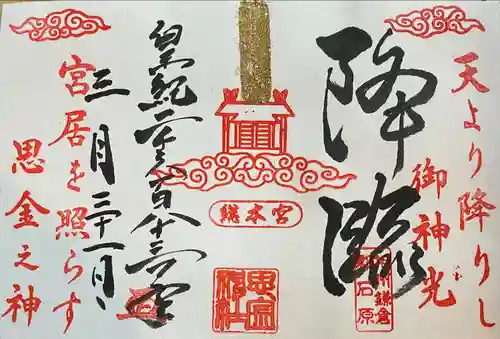 天より降りし
御神光
降臨
州鎌倉
石原
総本宮
思金神社
皇紀二千六百八十三年
三月三十一日
宮居を照らす
思金之神